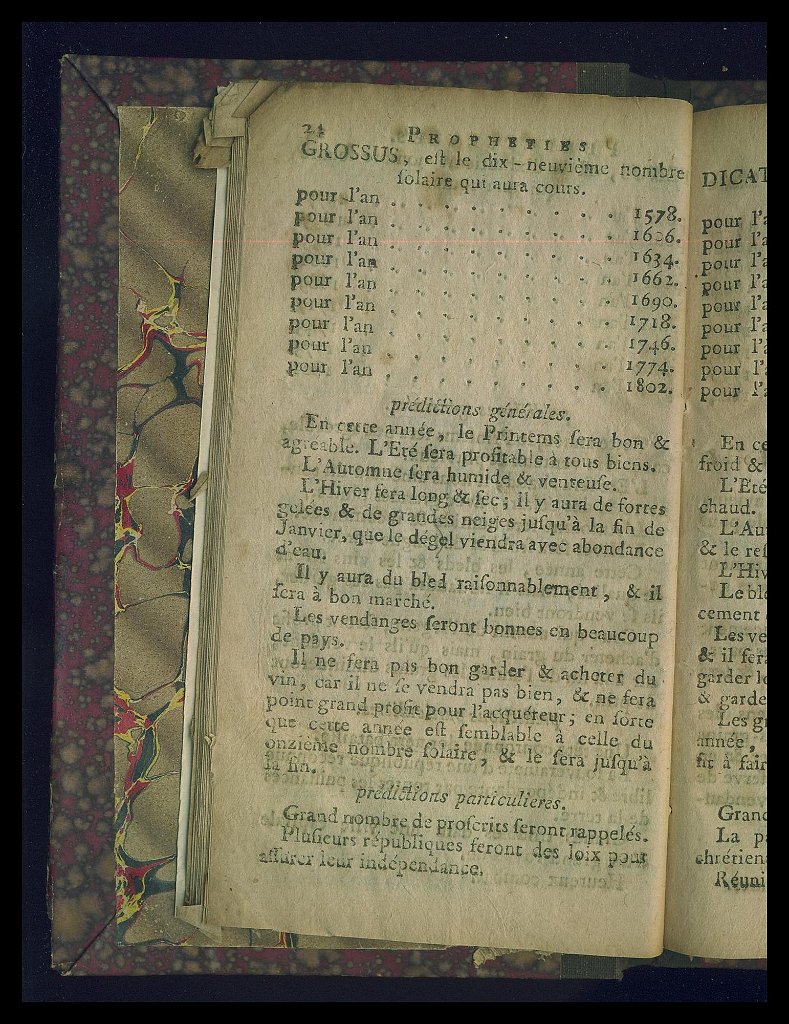 24 PROPHETIES
GROSSUS, eſt le dix-neuvième nombre
ſolaire qui aura cours.
pour l'an . . . . . . . . 1578.
pour l'an . . . . . . . . 1606.
pour l'an . . . . . . . . 1634.
pour l'an . . . . . . . . 1662.
pour l'an . . . . . . . . 1690.
pour l'an . . . . . . . . 1718.
pour l'an . . . . . . . . 1746.
pour l'an . . . . . . . . 1774.
pour l'an . . . . . . . . 1802.
prédictions générales.
En cette année, le Printems ſera bon &
agréable. L'Eté ſera profitable à tous biens.
L'Automne ſera humide & venteuſe.
L'Hiver ſera long & ſec; il y aura de fortes
gelées & de grandes neiges juſqu'à la fin de
Janvier, que le dégel viendra avec abondance
d'eau.
Il y aura du bled raiſonnablement, & il
ſera à bon marché.
Les vendanges ſeront bonnes en beaucoup
de pays.
Il ne ſera pas bon garder & acheter du
vin, car il ne ſe vendra pas bien, & ne ſera
point grand profit pour l'acquéreur; en ſorte
que cette année eſt ſemblable à celle du
onzième nombre ſolaire, & le ſera juſqu'à
la fin.
prédictions particulieres.
Grand nombre de proſcrits ſeront rappelés.
Pluſieurs républiques feront des loix pour
aſſurer leur indépendance.
DICAT
pour l'a
pour l'a
pour l'a
pour l'a
pour l'a
pour l'a
pour l'a
pour l'a
pour l'a
En ce
froid &
L'Eté
chaud.
L'Au
& le reſ
L'Hiv
Le blé
cement
Les ve
& il ſera
garder le
& garde
Les gr
année,
fit à fair
Grand
La pa
chrétien
Réuni